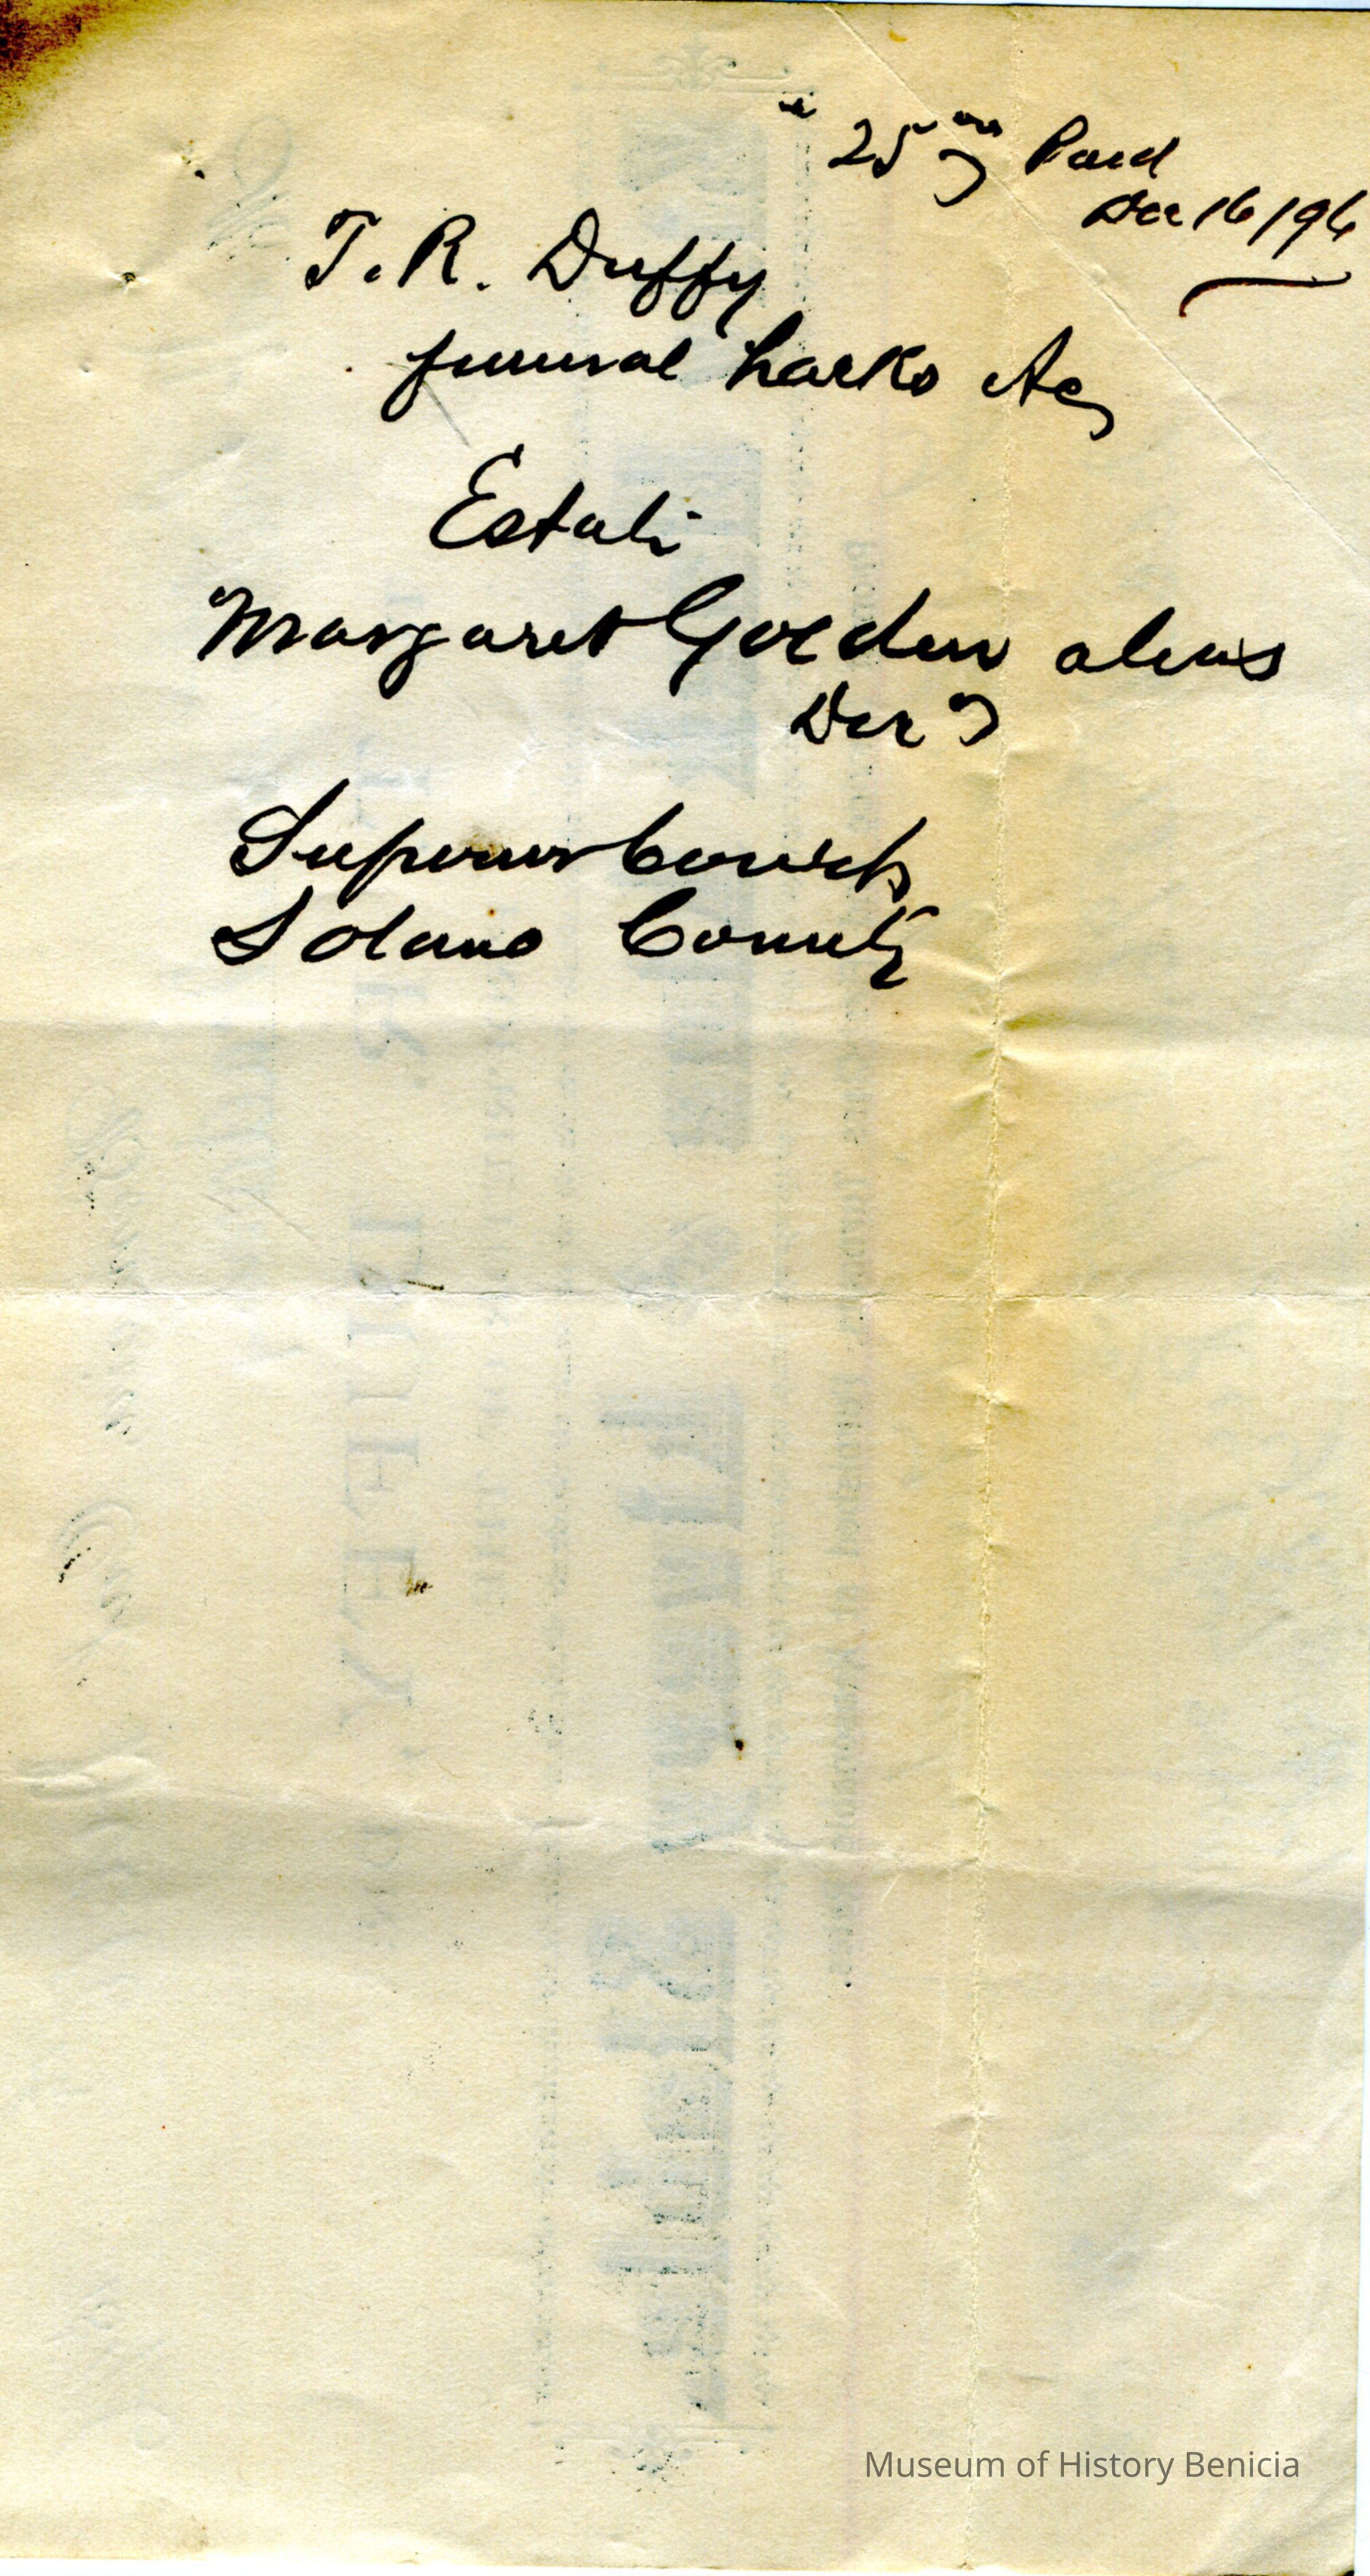 25 00 Paid
Dec 16/96
T. R. Duffy
funeral hacks &c
Estate
Margaret Golden alias
Dec
Superior Court
Solano County
Museum of History Benicia